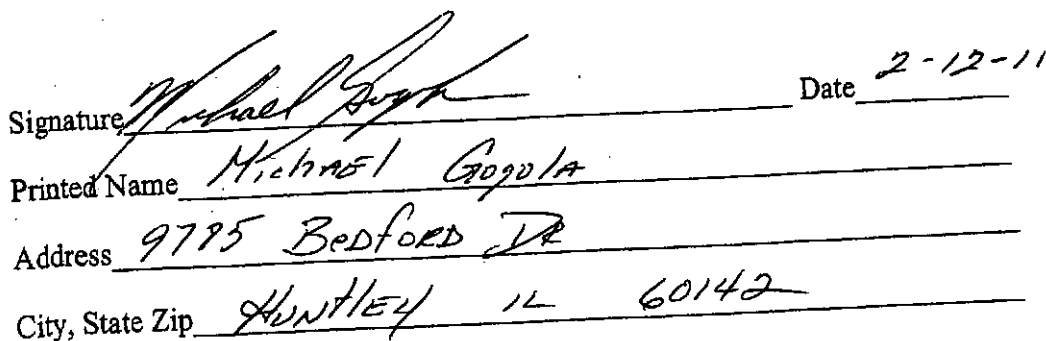 Signature Michael Gogola Date 2-12-11
Printed Name Michael Gogola
Address 9785 Bedford Dr
City, State Zip Huntley IL 60142